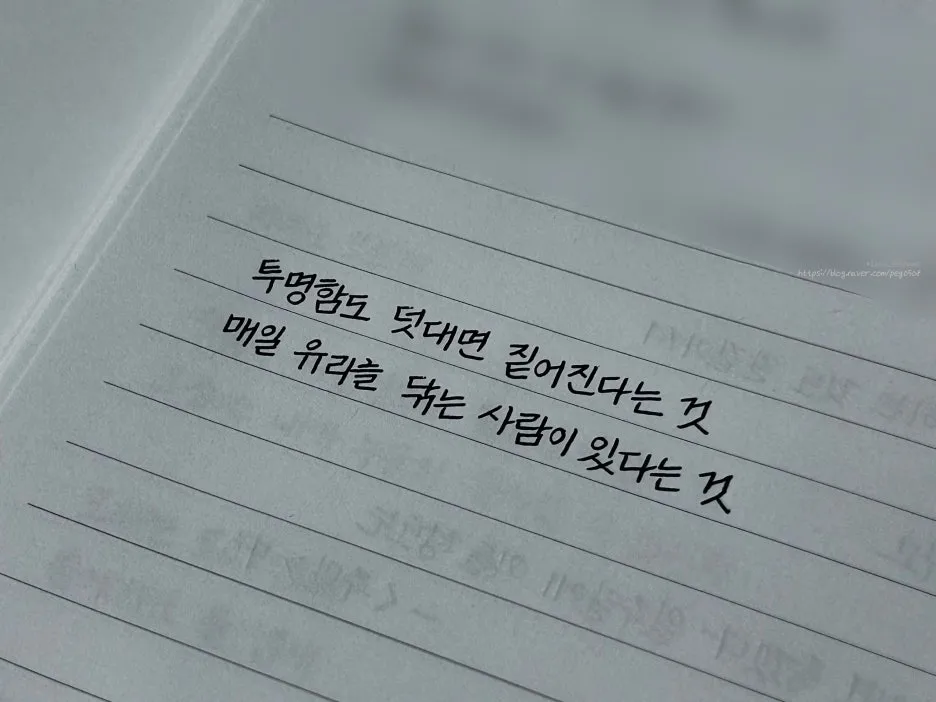 https://blog.naver.com/peg0506
투명함도 덧대면 짙어진다는 것
매일 유리를 닦는 사람이 있다는 것